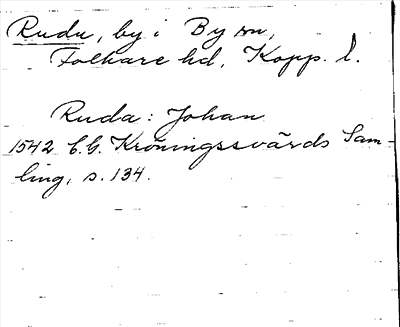 Rudu, by i By sn,
Folkare hd, Kopp. l.
Ruda: Johan
1542 C.G. Kröningssvärds Sam-
ling, s. 134.